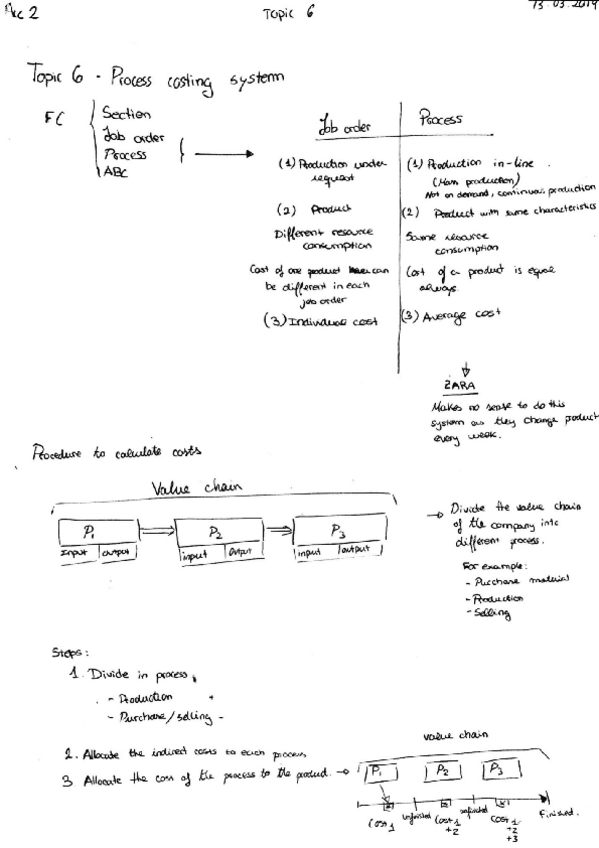 Acc 2
Topic 6
13.03.2019
Topic 6 - Process costing system
FC
Section
Job order
Process
ABC
Job order
(1) Production under
request
(2) Product
Different resource
consumption
Cost of one product can
be different in each
job order
(3) Individual cost
Process
(1) Production in-line.
(Mass production)
Not on demand, continuous production
(2) Product with same characteristics
Same resource
consumption
Cost of a product is equal
always.
(3) Average cost
ZARA
Makes no sense to do this
system as they change product
every week.
Procedure to calculate costs
Value chain
P1
Input output
P2
input output
P3
input output
Divide the value chain
of the company into
different process.
For example:
- Purchase material
- Production
- Selling
Steps:
1. Divide in process
- Production
- Purchase/selling -
2. Allocate the indirect costs to each process
3. Allocate the cost of the process to the product.
value chain
P1 P2 P3
Cost 1
unfinished
Cost 1
+2
unfinished
Cost 1
+2
+3
Finished.